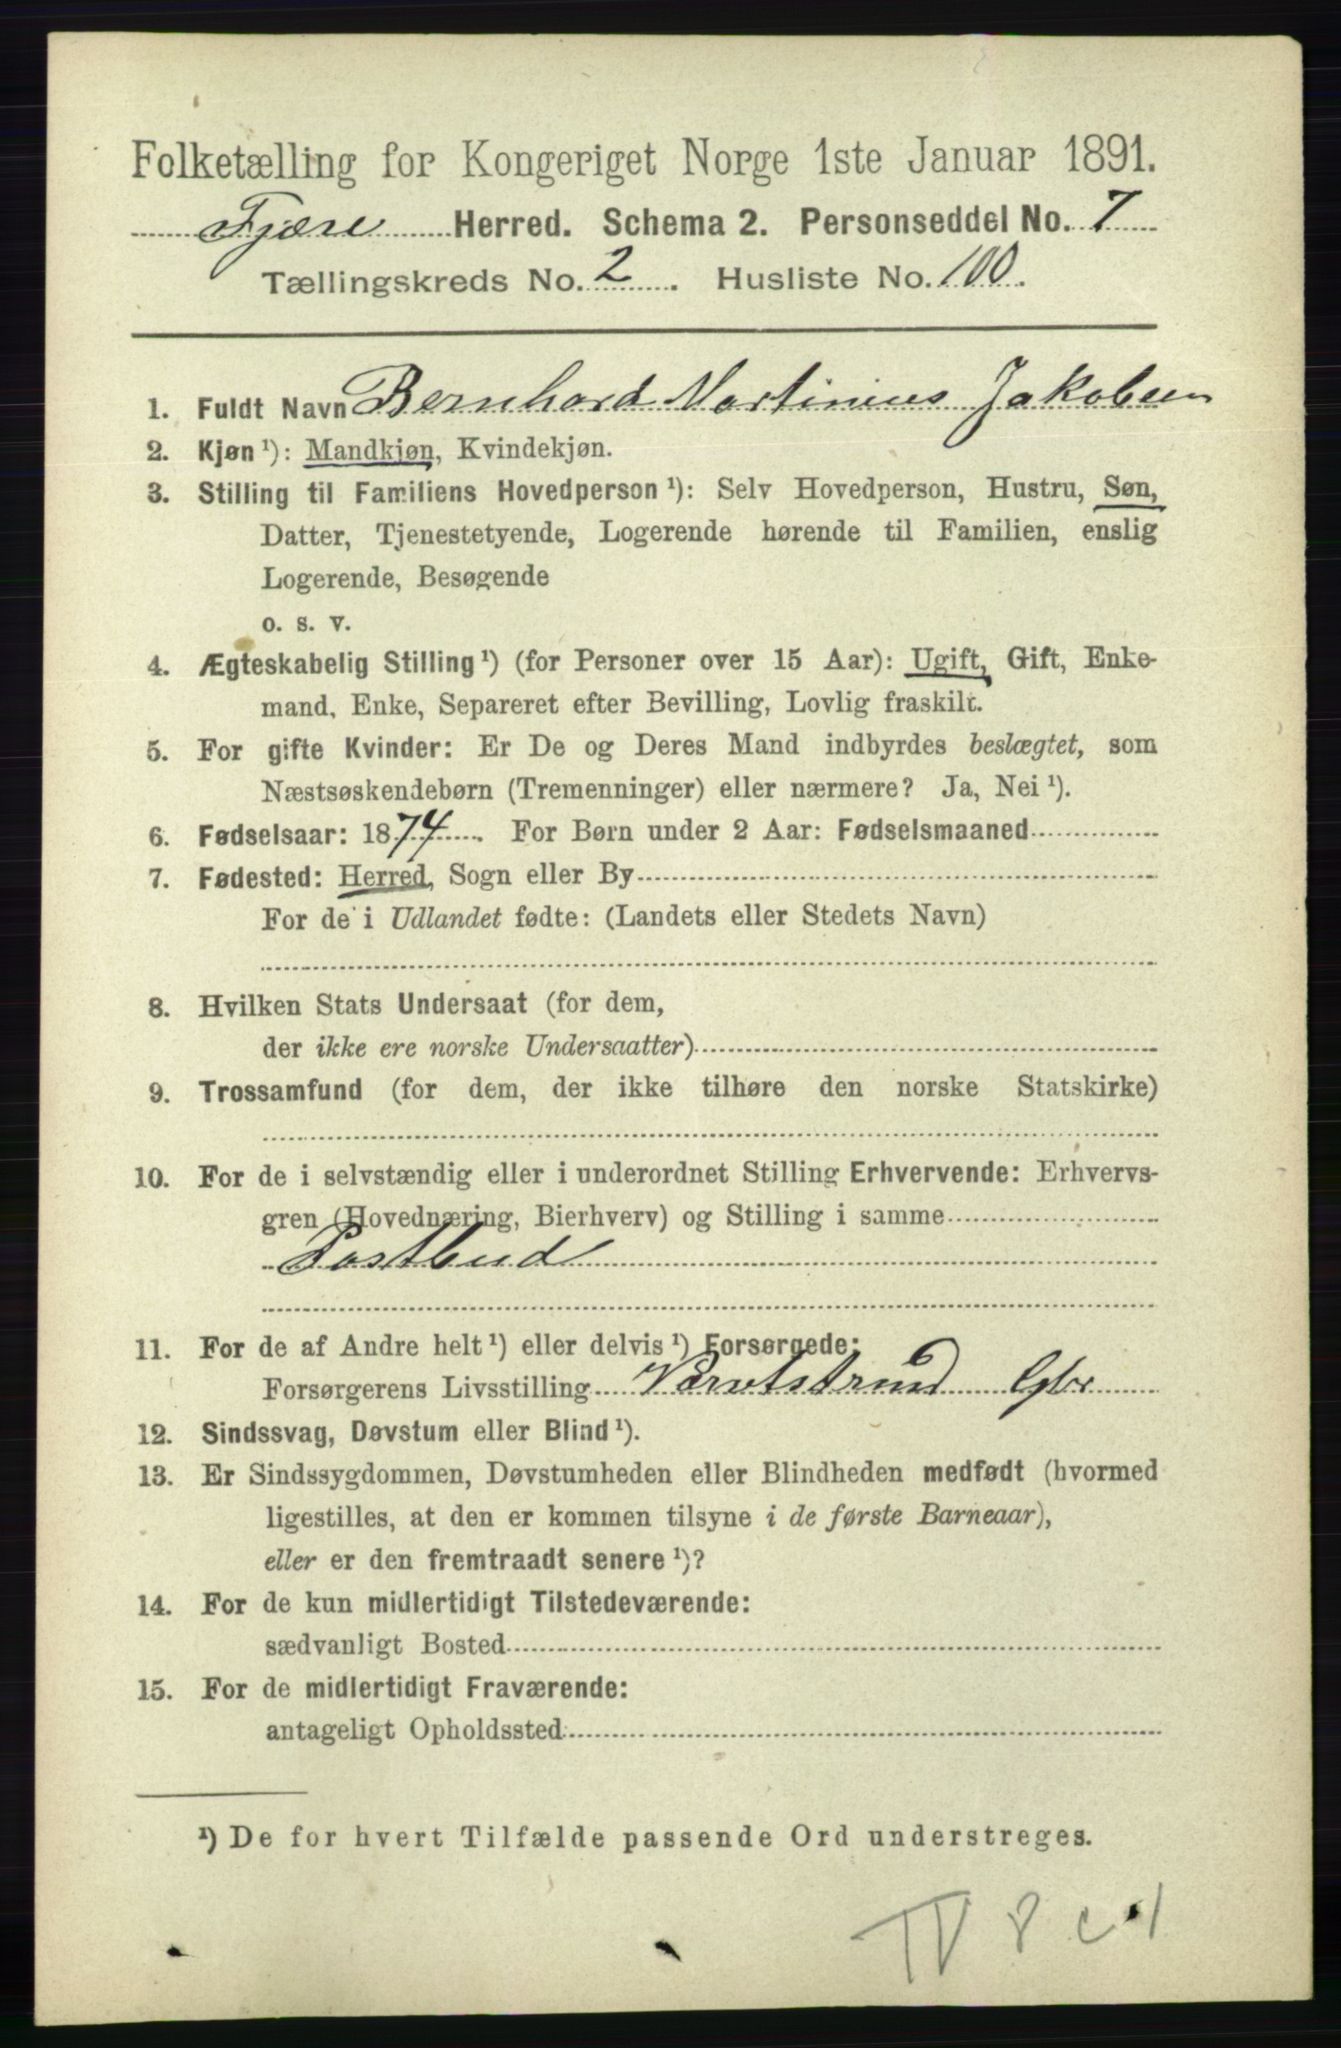 Folketælling for Kongeriget Norge 1ste Januar 1891.
Fjære Herred. Schema 2. Personseddel No. 7
Tællingskreds No. 2. Husliste No. 100.
1. Fuldt Navn Bernhard Martinius Jakobsen
2. Kjøn ¹): Mandkjøn, Kvindekjøn.
3. Stilling til Familiens Hovedperson ¹): Selv Hovedperson, Hustru, Søn,
Datter, Tjenestetyende, Logerende hørende til Familien, enslig
Logerende, Besøgende
o. s. v.
4. Ægteskabelig Stilling ¹) (for Personer over 15 Aar): Ugift, Gift, Enke-
mand, Enke, Separeret efter Bevilling, Lovlig fraskilt.
5. For gifte Kvinder: Er De og Deres Mand indbyrdes beslægtet, som
Næstsøskendebørn (Tremenninger) eller nærmere? Ja, Nei ¹).
6. Fødselsaar: 1874. For Børn under 2 Aar: Fødselsmaaned
7. Fødested: Herred, Sogn eller By
For de i Udlandet fødte: (Landets eller Stedets Navn)
8. Hvilken Stats Undersaat (for dem,
der ikke ere norske Undersaatter)
9. Trossamfund (for dem, der ikke tilhøre den norske Statskirke)
10. For de i selvstændig eller i underordnet Stilling Erhvervende: Erhvervs-
gren (Hovednæring, Bierhverv) og Stilling i samme
Postbud
11. For de af Andre helt ¹) eller delvis ¹) Forsørgede:
Forsørgerens Livsstilling
12. Sindssvag, Døvstum eller Blind ¹).
13. Er Sindssygdommen, Døvstumheden eller Blindheden medfødt (hvormed
ligestilles, at den er kommen tilsyne i de første Barneaar),
eller er den fremtraadt senere ¹)?
14. For de kun midlertidigt Tilstedeværende:
sædvanligt Bosted
15. For de midlertidigt Fraværende:
antageligt Opholdssted
¹) De for hvert Tilfælde passende Ord understreges.
IV 8 c 1